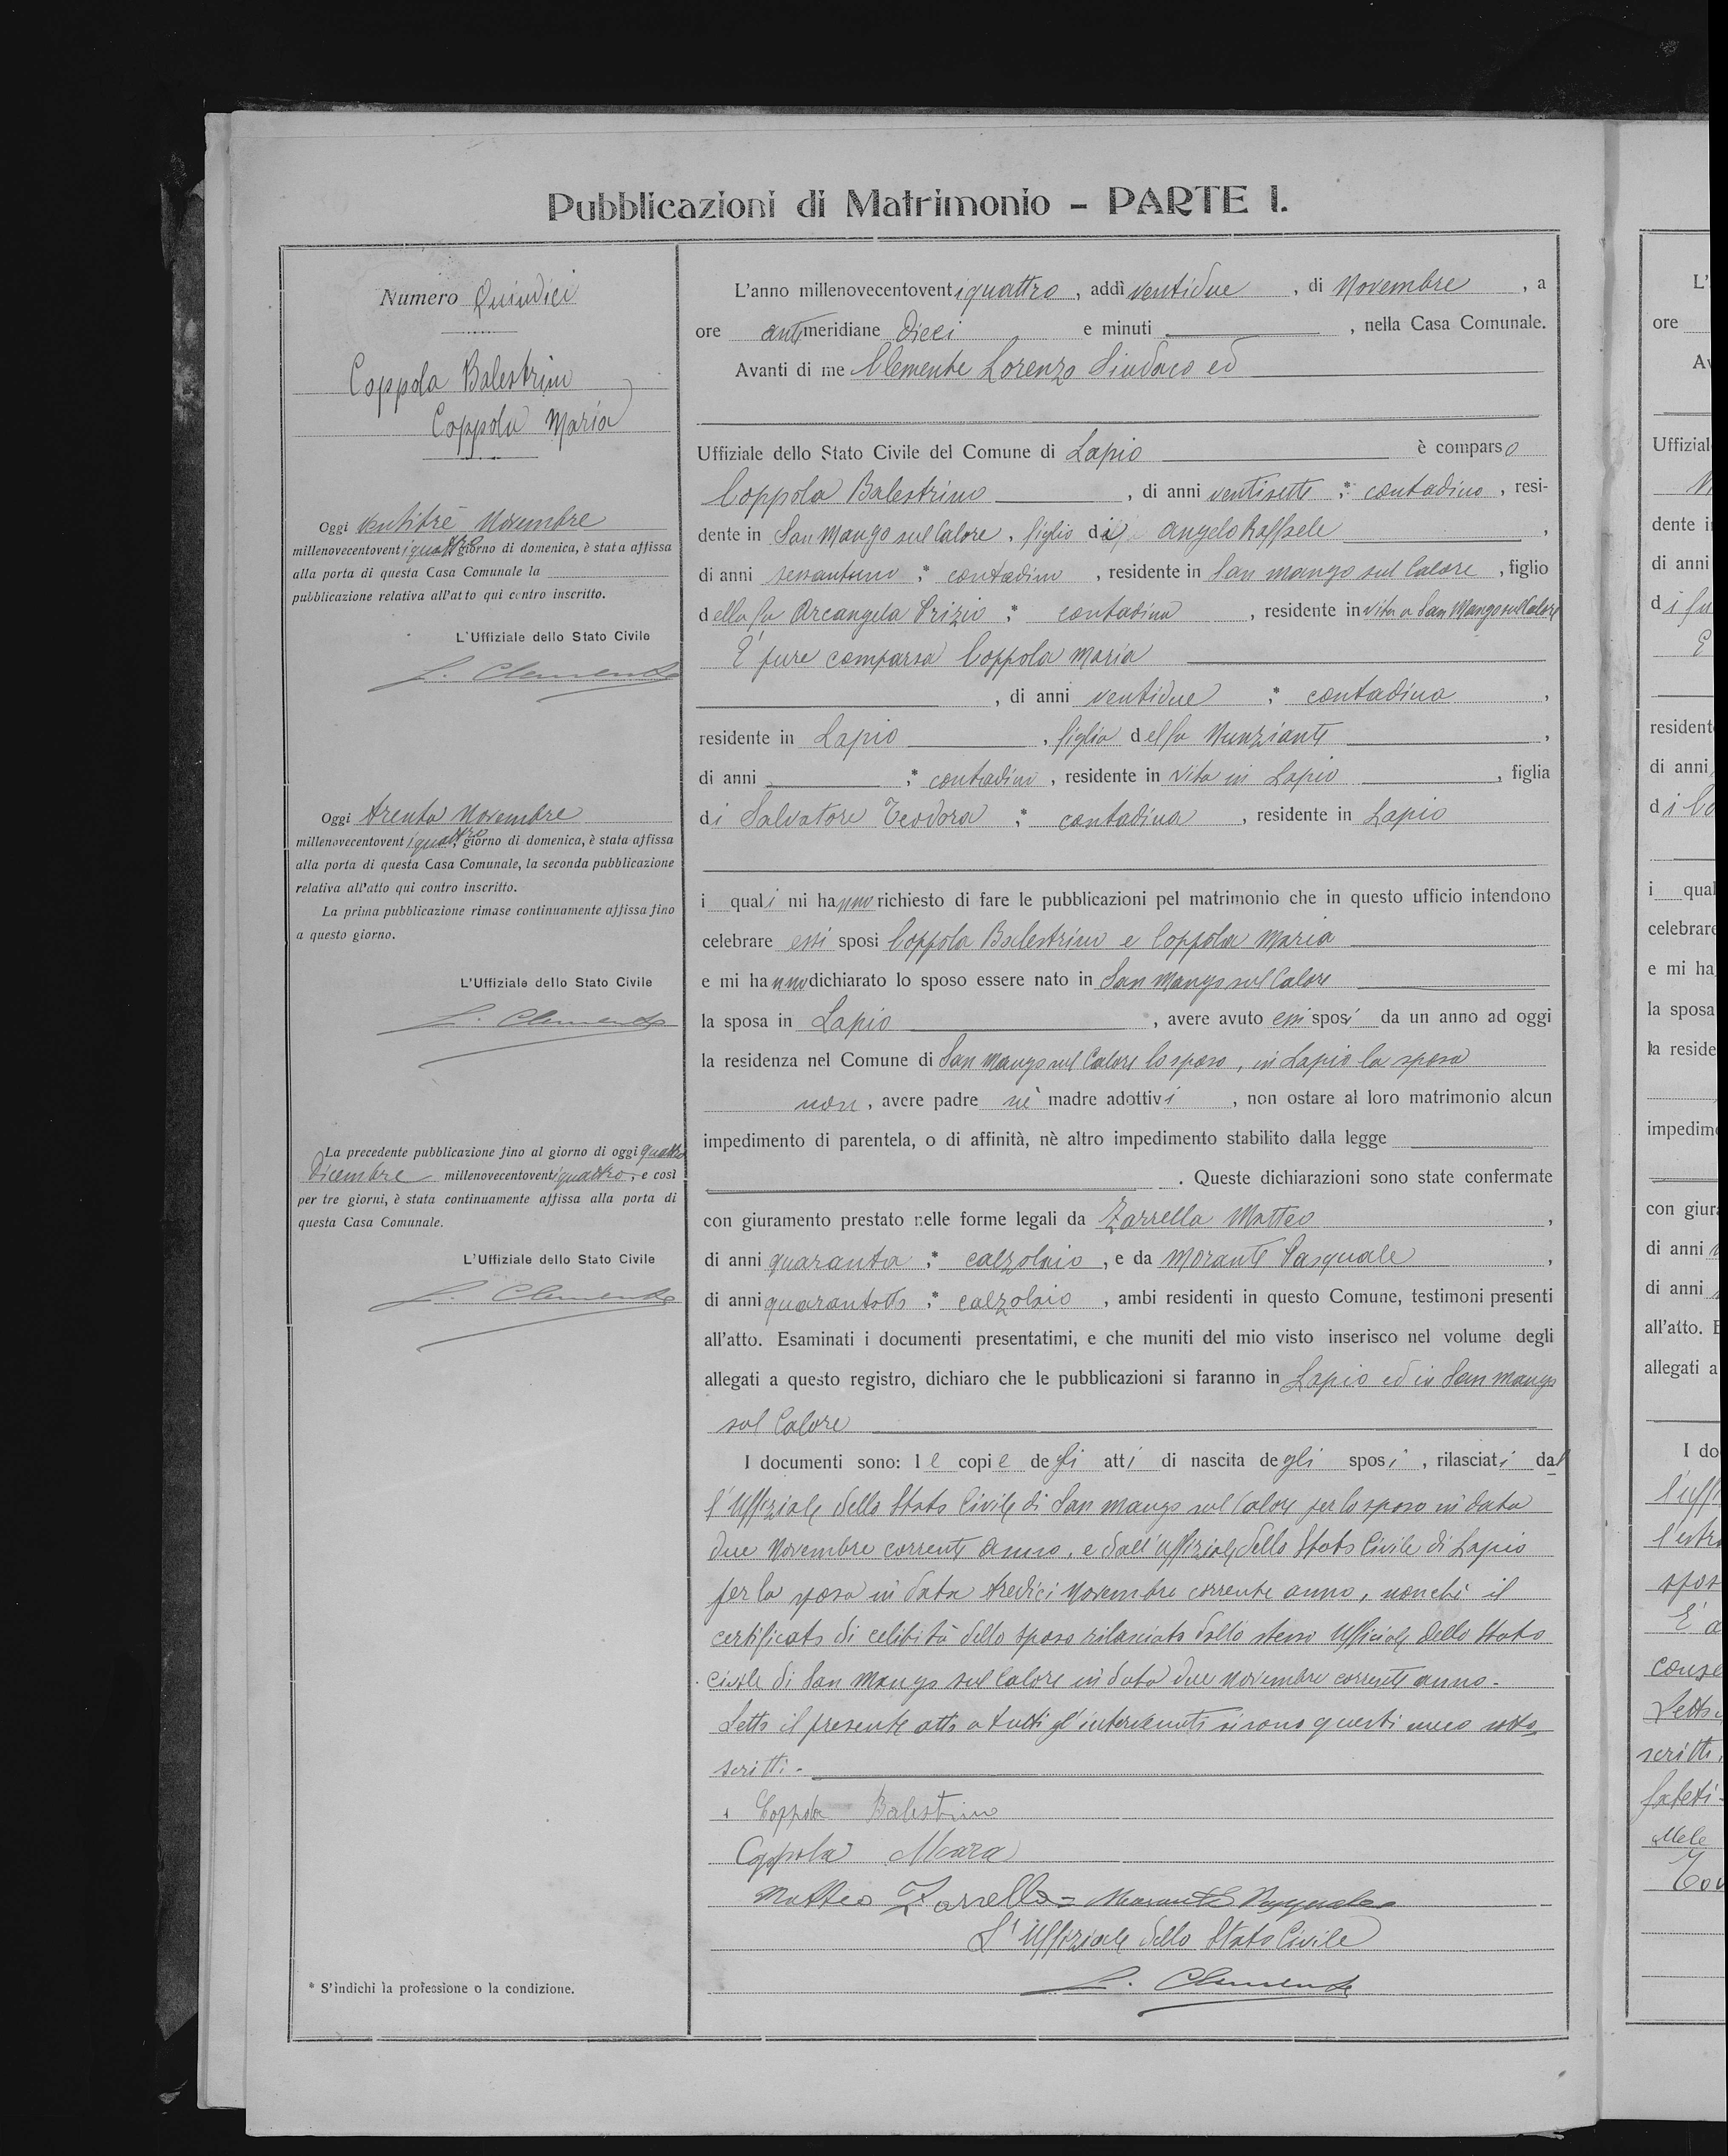 Pubblicazioni di Matrimonio - PARTE I.
Numero Quindici
Coppola Balestrino
Coppola Maria
Oggi ventitrè Novembre
millenovecentoventiquattro, giorno di domenica, è stata affissa
alla porta di questa Casa Comunale la
pubblicazione relativa all'atto qui contro inscritto.
L'Uffiziale dello Stato Civile
L. Clemente
Oggi trenta Novembre
millenovecentoventiquattro, giorno di domenica, è stata affissa
alla porta di questa Casa Comunale, la seconda pubblicazione
relativa all'atto qui contro inscritto.
La prima pubblicazione rimase continuamente affissa fino
a questo giorno.
L'Uffiziale dello Stato Civile
L. Clemente
La precedente pubblicazione fino al giorno di oggi quattro
Dicembre millenovecentoventiquattro, e così
per tre giorni, è stata continuamente affissa alla porta di
questa Casa Comunale.
L'Uffiziale dello Stato Civile
L. Clemente
* S'indichi la professione o la condizione.
L'anno millenovecentoventiquattro, addì ventidue, di Novembre, a
ore antimeridiane dieci e minuti, nella Casa Comunale.
Avanti di me Clemente Lorenzo Sindaco ed
Uffiziale dello Stato Civile del Comune di Lapio è comparso
Coppola Balestrino, di anni ventisette * contadino, resi-
dente in San Mango sul Calore, figlio di Angelo Raffaele,
di anni sessantuno * contadino, residente in San Mango sul Calore, figlio
della fu Arcangela Prizio * contadina, residente in vita a San Mango sul Calore
È pure comparsa Coppola Maria
, di anni ventidue * contadina,
residente in Lapio, figlia del fu Nunziante,
di anni * contadino, residente in vita in Lapio, figlia
di Salvatore Teodora * contadina, residente in Lapio
i quali mi hanno richiesto di fare le pubblicazioni pel matrimonio che in questo ufficio intendono
celebrare essi sposi Coppola Balestrino e Coppola Maria
e mi hanno dichiarato lo sposo essere nato in San Mango sul Calore
la sposa in Lapio, avere avuto essi sposi da un anno ad oggi
la residenza nel Comune di San Mango sul Calore lo sposo, in Lapio la sposa
non, avere padre nè madre adottivi, non ostare al loro matrimonio alcun
impedimento di parentela, o di affinità, nè altro impedimento stabilito dalla legge
. Queste dichiarazioni sono state confermate
con giuramento prestato nelle forme legali da Zarrella Matteo,
di anni quaranta * calzolaio, e da Morante Pasquale,
di anni quarantotto * calzolaio, ambi residenti in questo Comune, testimoni presenti
all'atto. Esaminati i documenti presentatimi, e che muniti del mio visto inserisco nel volume degli
allegati a questo registro, dichiaro che le pubblicazioni si faranno in Lapio ed in San Mango
sul Calore
I documenti sono: le copie degli atti di nascita degli sposi, rilasciati dal
l'Uffiziale dello Stato Civile di San Mango sul Calore per lo sposo in data
due Novembre corrente anno, e dall'Uffiziale dello Stato Civile di Lapio
per la sposa in data tredici Novembre corrente anno, nonchè il
certificato di celibità dello sposo rilasciato dallo stesso Ufficiale dello Stato
Civile di San Mango sul Calore in data due Novembre corrente anno.
Letto il presente atto a tutti gl'intervenuti si sono questi meco sotto
scritti.
Coppola Balestrino
Coppola Mara
Matteo Zarrella = Morante Pasquale
L'Uffiziale dello Stato Civile
L. Clemente
L'
ore
Av
Uffizial
dente i
di anni
di fu
E
resident
di anni
di Co
i qual
celebrare
e mi ha
la sposa
la reside
impedime
con giura
di anni
di anni
all'atto. E
allegati a
I do
l'uffi
l'estra
spos
conse
Letto
scritti